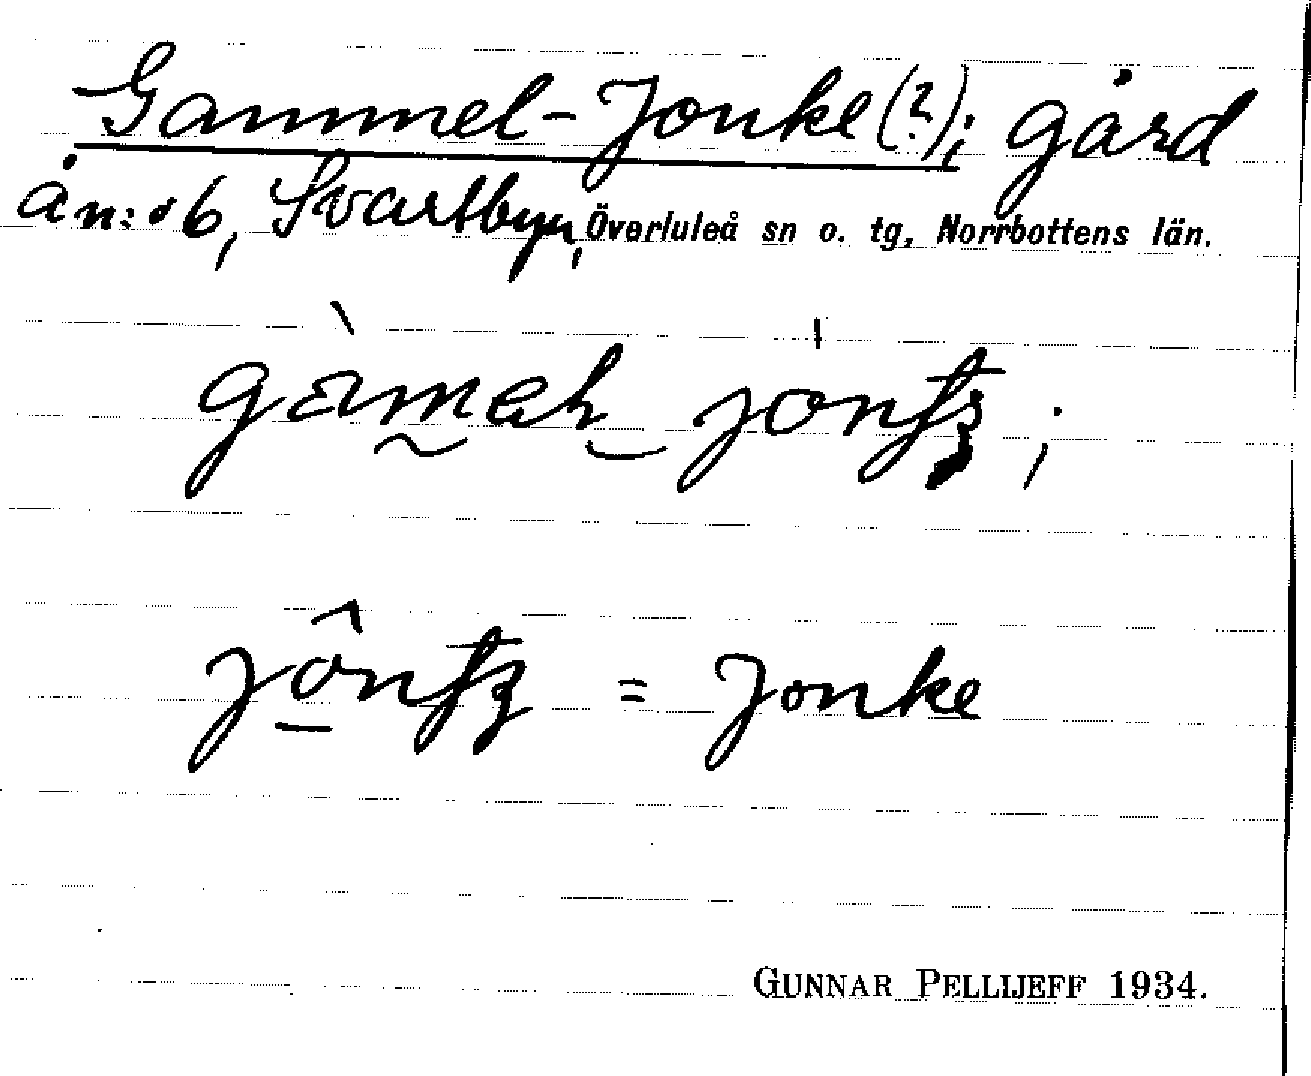 Gammel-Jonke(?); gård
å n:o 6, Svartbyn, Överluleå sn o. tg, Norrbottens län.
= Jonke
GUNNAR PELLIJEFF 1934.